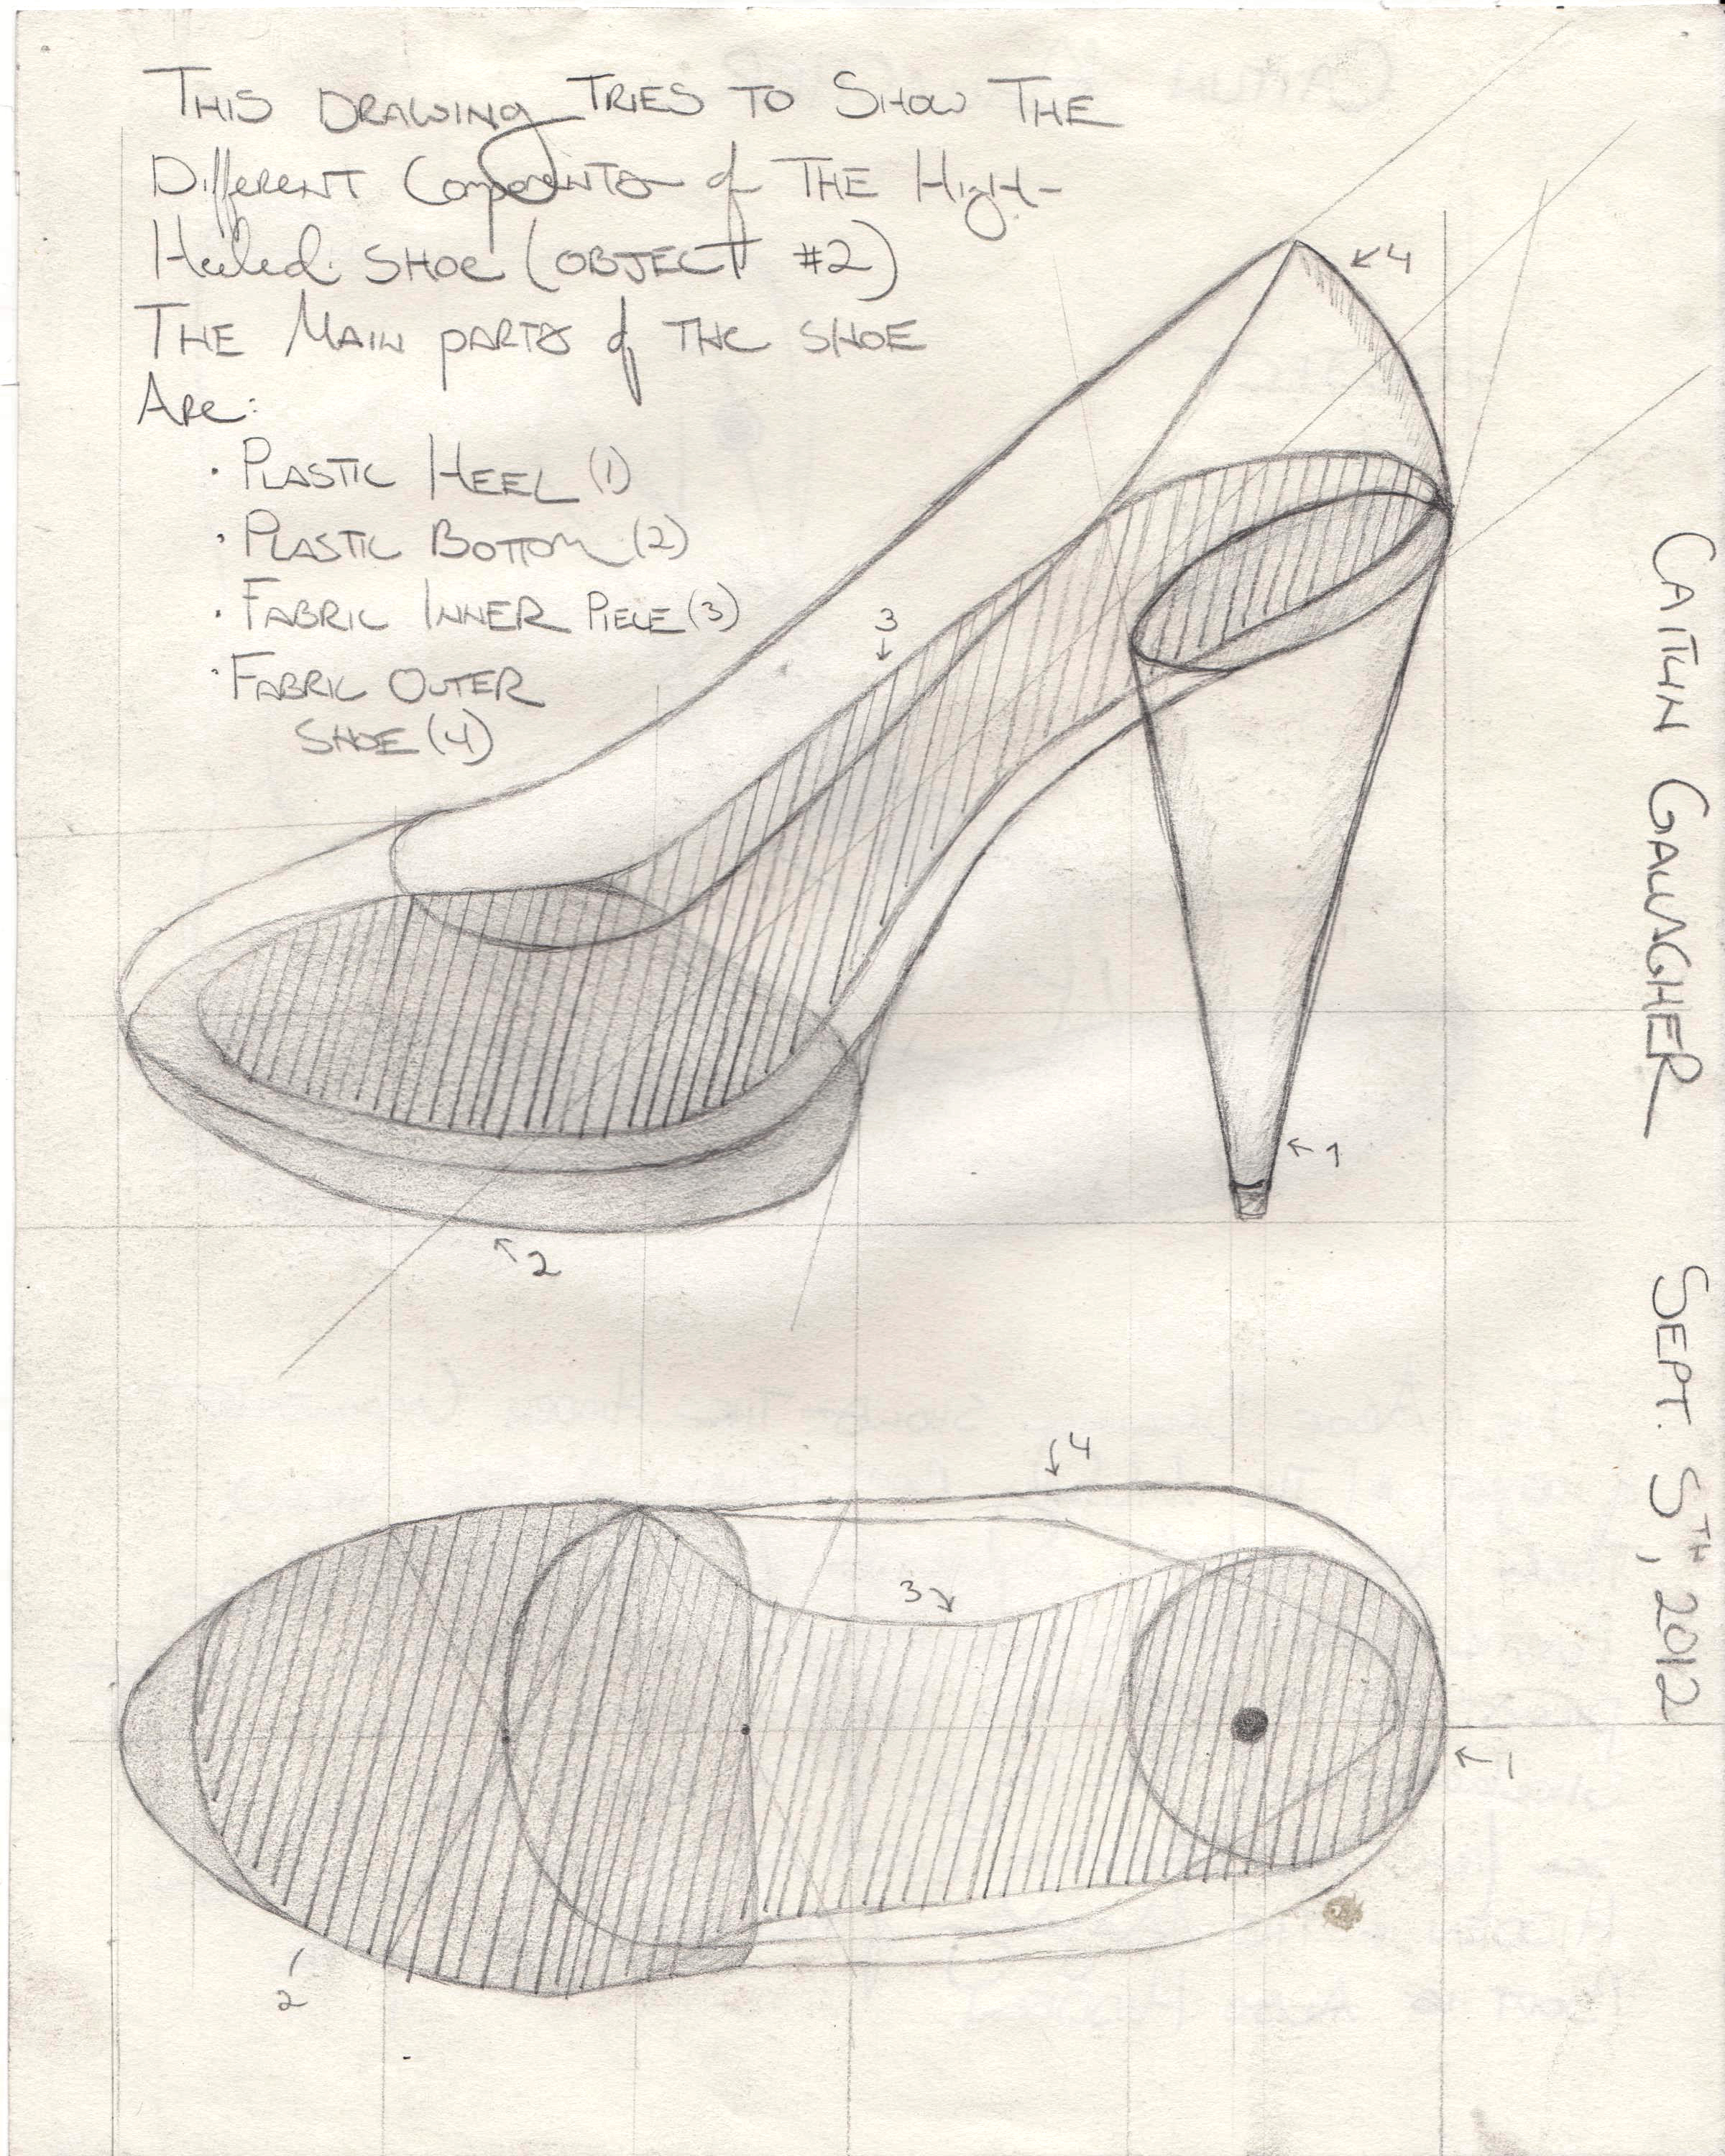 THIS DRAWING TRIES TO SHOW THE
Different Components of THE High-
Heeled SHOE (OBJECT #2)
THE MAIN PARTS of THE SHOE
ARE:
• PLASTIC HEEL (1)
• PLASTIC BOTTOM (2)
• FABRIC INNER PIECE (3)
• FABRIC OUTER
SHOE (4)
←4
3
↓
←1
↖2
↓4
3↘
←1
2
CAITLIN GALLAGHER SEPT. 5TH, 2012